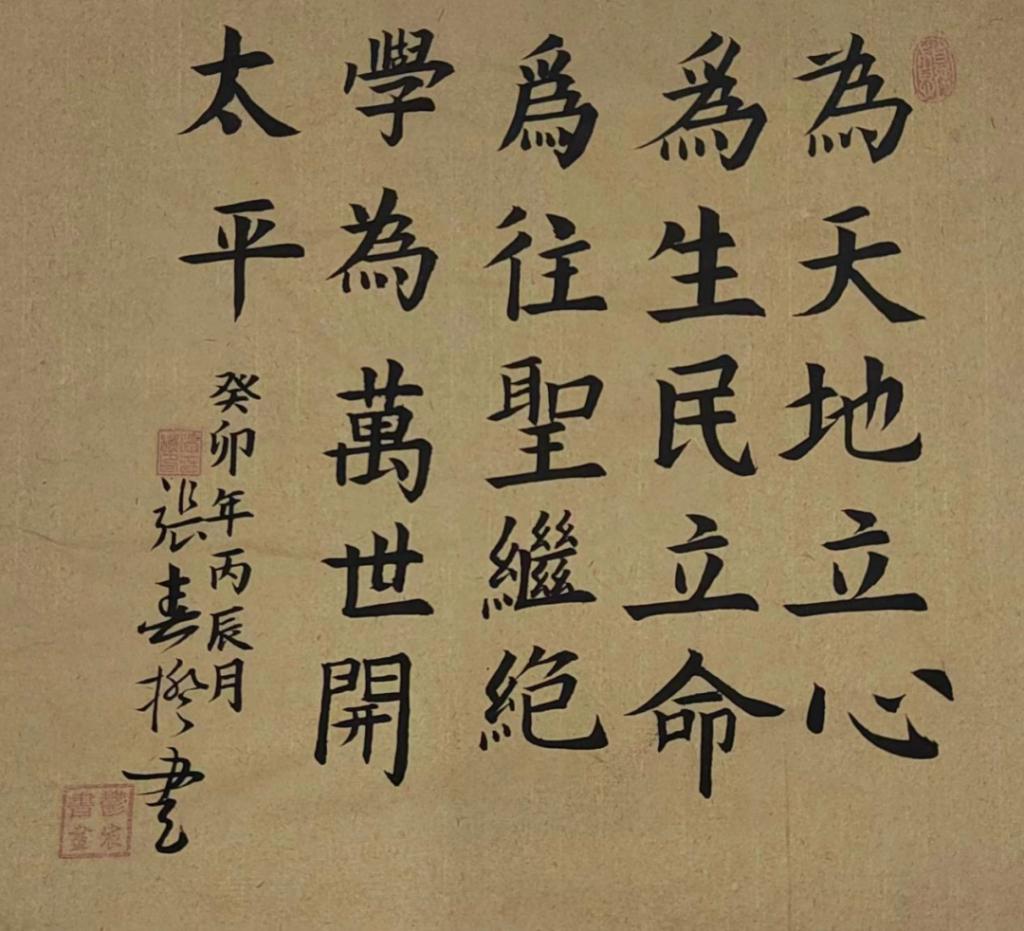 為天地立心
爲生民立命
爲往聖繼絕
學為萬世開
太平
癸卯年丙辰月
張春撥書